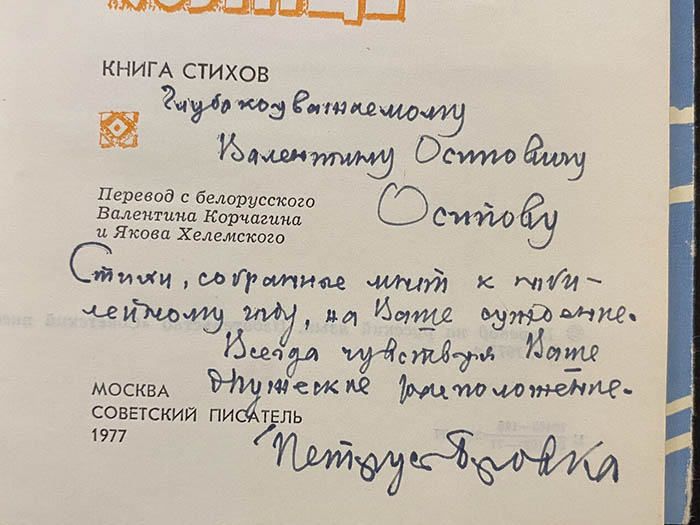 КНИГА СТИХОВ
Глубокоуважаемому
Валентину Осиповичу
Осипову
Перевод с белорусского
Валентина Корчагина
и Якова Хелемского
Стихи, собранные мной к юби-
лейному году, на Ваше суждение.
Всегда чувствуя Ваше
дружеское расположение.
МОСКВА
СОВЕТСКИЙ ПИСАТЕЛЬ
1977
Петрусь Бровка